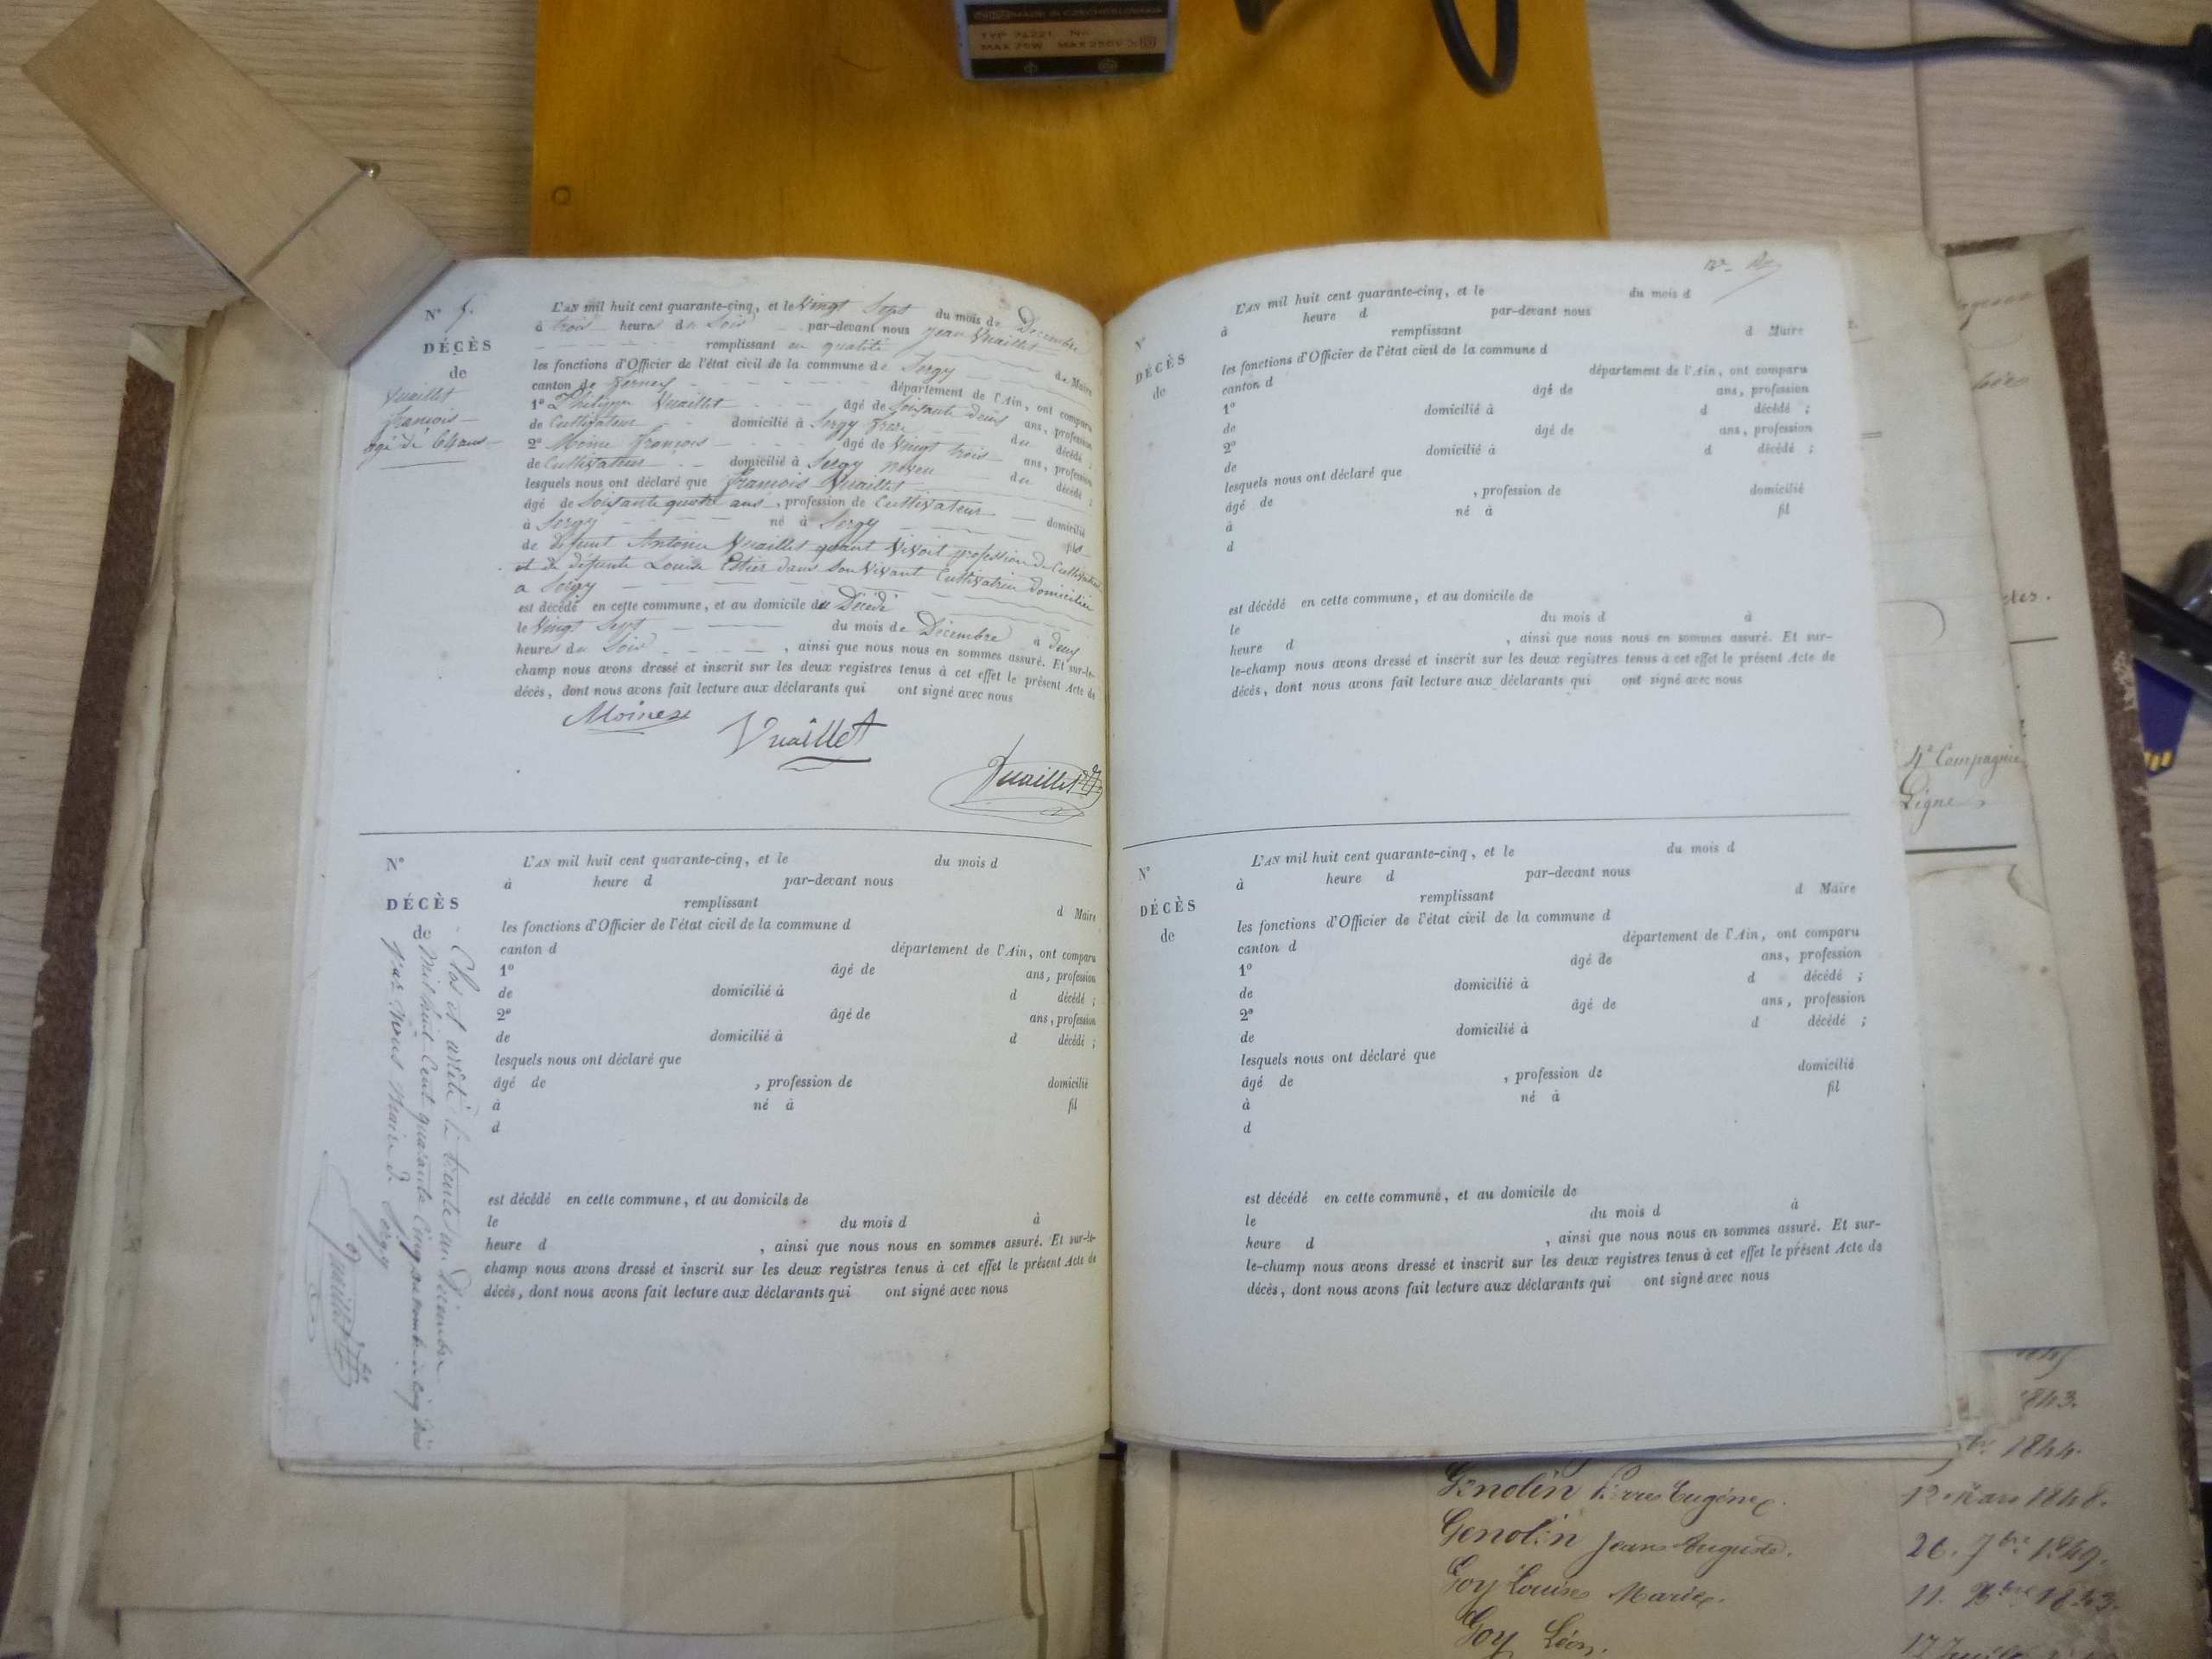 MADE IN CZECHOSLOVAKIA
TYP 74221 No
MAX 75W MAX 250V
N° 5.
DÉCÈS
de
Vuaillet
françois
agé de 64 ans
L'AN mil huit cent quarante-cinq, et le Vingt Sept du mois de Décembre
à trois heures du Soir par-devant nous Jean Vuaillet
remplissant en qualité de Maire
les fonctions d'Officier de l'état civil de la commune de Sergy
canton de ferney département de l'Ain, ont comparu
1° Philippe Vuaillet âgé de Soixante deux ans, profession
de Cultivateur domicilié à Sergy frère du décédé ;
2° Moine françois âgé de Vingt trois ans, profession
de Cultivateur domicilié à Sergy neveu du décédé ;
lesquels nous ont déclaré que françois Vuaillet
âgé de Soixante quatre ans, profession de Cultivateur domicilié
à Sergy né à Sergy fils
de défunt Antoine Vuaillet quant Vivoit profession de Cultivateur
et de défunte Louise Estier dans son Vivant Cultivatrice domicilier
a Sergy
est décédé en cette commune, et au domicile du Décédé
le Vingt Sept du mois de Décembre à deux
heures du Soir , ainsi que nous nous en sommes assuré. Et sur-le-
champ nous avons dressé et inscrit sur les deux registres tenus à cet effet le présent Acte de
décès, dont nous avons fait lecture aux déclarants qui ont signé avec nous
Moine
Vuaillet
Vuaillet
N°
DÉCÈS
de
Clos et arrêté le trente un Décembre
Mil huit Cent quarante Cinq au nombre de Cinq
par Nous Maire de Sergy
Vuaillet
L'AN mil huit cent quarante-cinq, et le du mois d
à heure d par-devant nous
remplissant d Maire
les fonctions d'Officier de l'état civil de la commune d
canton d département de l'Ain, ont comparu
1° âgé de ans, profession
de domicilié à d décédé ;
2° âgé de ans, profession
de domicilié à d décédé ;
lesquels nous ont déclaré que
âgé de , profession de domicilié
à né à fil
d
est décédé en cette commune, et au domicile de
le du mois d à
heure d , ainsi que nous nous en sommes assuré. Et sur-le-
champ nous avons dressé et inscrit sur les deux registres tenus à cet effet le présent Acte de
décès, dont nous avons fait lecture aux déclarants qui ont signé avec nous
N°
DÉCÈS
de
L'AN mil huit cent quarante-cinq, et le du mois d
à heure d par-devant nous
remplissant d Maire
les fonctions d'Officier de l'état civil de la commune d
canton d département de l'Ain, ont comparu
1° âgé de ans, profession
de domicilié à d décédé ;
2° âgé de ans, profession
de domicilié à d décédé ;
lesquels nous ont déclaré que
âgé de , profession de domicilié
à né à fil
d
est décédé en cette commune, et au domicile de
le du mois d à
heure d , ainsi que nous nous en sommes assuré. Et sur-
le-champ nous avons dressé et inscrit sur les deux registres tenus à cet effet le présent Acte de
décès, dont nous avons fait lecture aux déclarants qui ont signé avec nous
N°
DÉCÈS
de
L'AN mil huit cent quarante-cinq, et le du mois d
à heure d par-devant nous
remplissant d Maire
les fonctions d'Officier de l'état civil de la commune d
canton d département de l'Ain, ont comparu
1° âgé de ans, profession
de domicilié à d décédé ;
2° âgé de ans, profession
de domicilié à d décédé ;
lesquels nous ont déclaré que
âgé de , profession de domicilié
à né à fil
d
est décédé en cette commune, et au domicile de
le du mois d à
heure d , ainsi que nous nous en sommes assuré. Et sur-
le-champ nous avons dressé et inscrit sur les deux registres tenus à cet effet le présent Acte de
décès, dont nous avons fait lecture aux déclarants qui ont signé avec nous
4e Compagnie
Ligne
1843.
1844.
Genolin Pierre Eugène. 12 Mars 1848.
Genolin Jean Auguste. 26. 7bre 1849.
Goy Louise Marie. 11. Xbre 1843.
Goy Léon. 17 Juillet